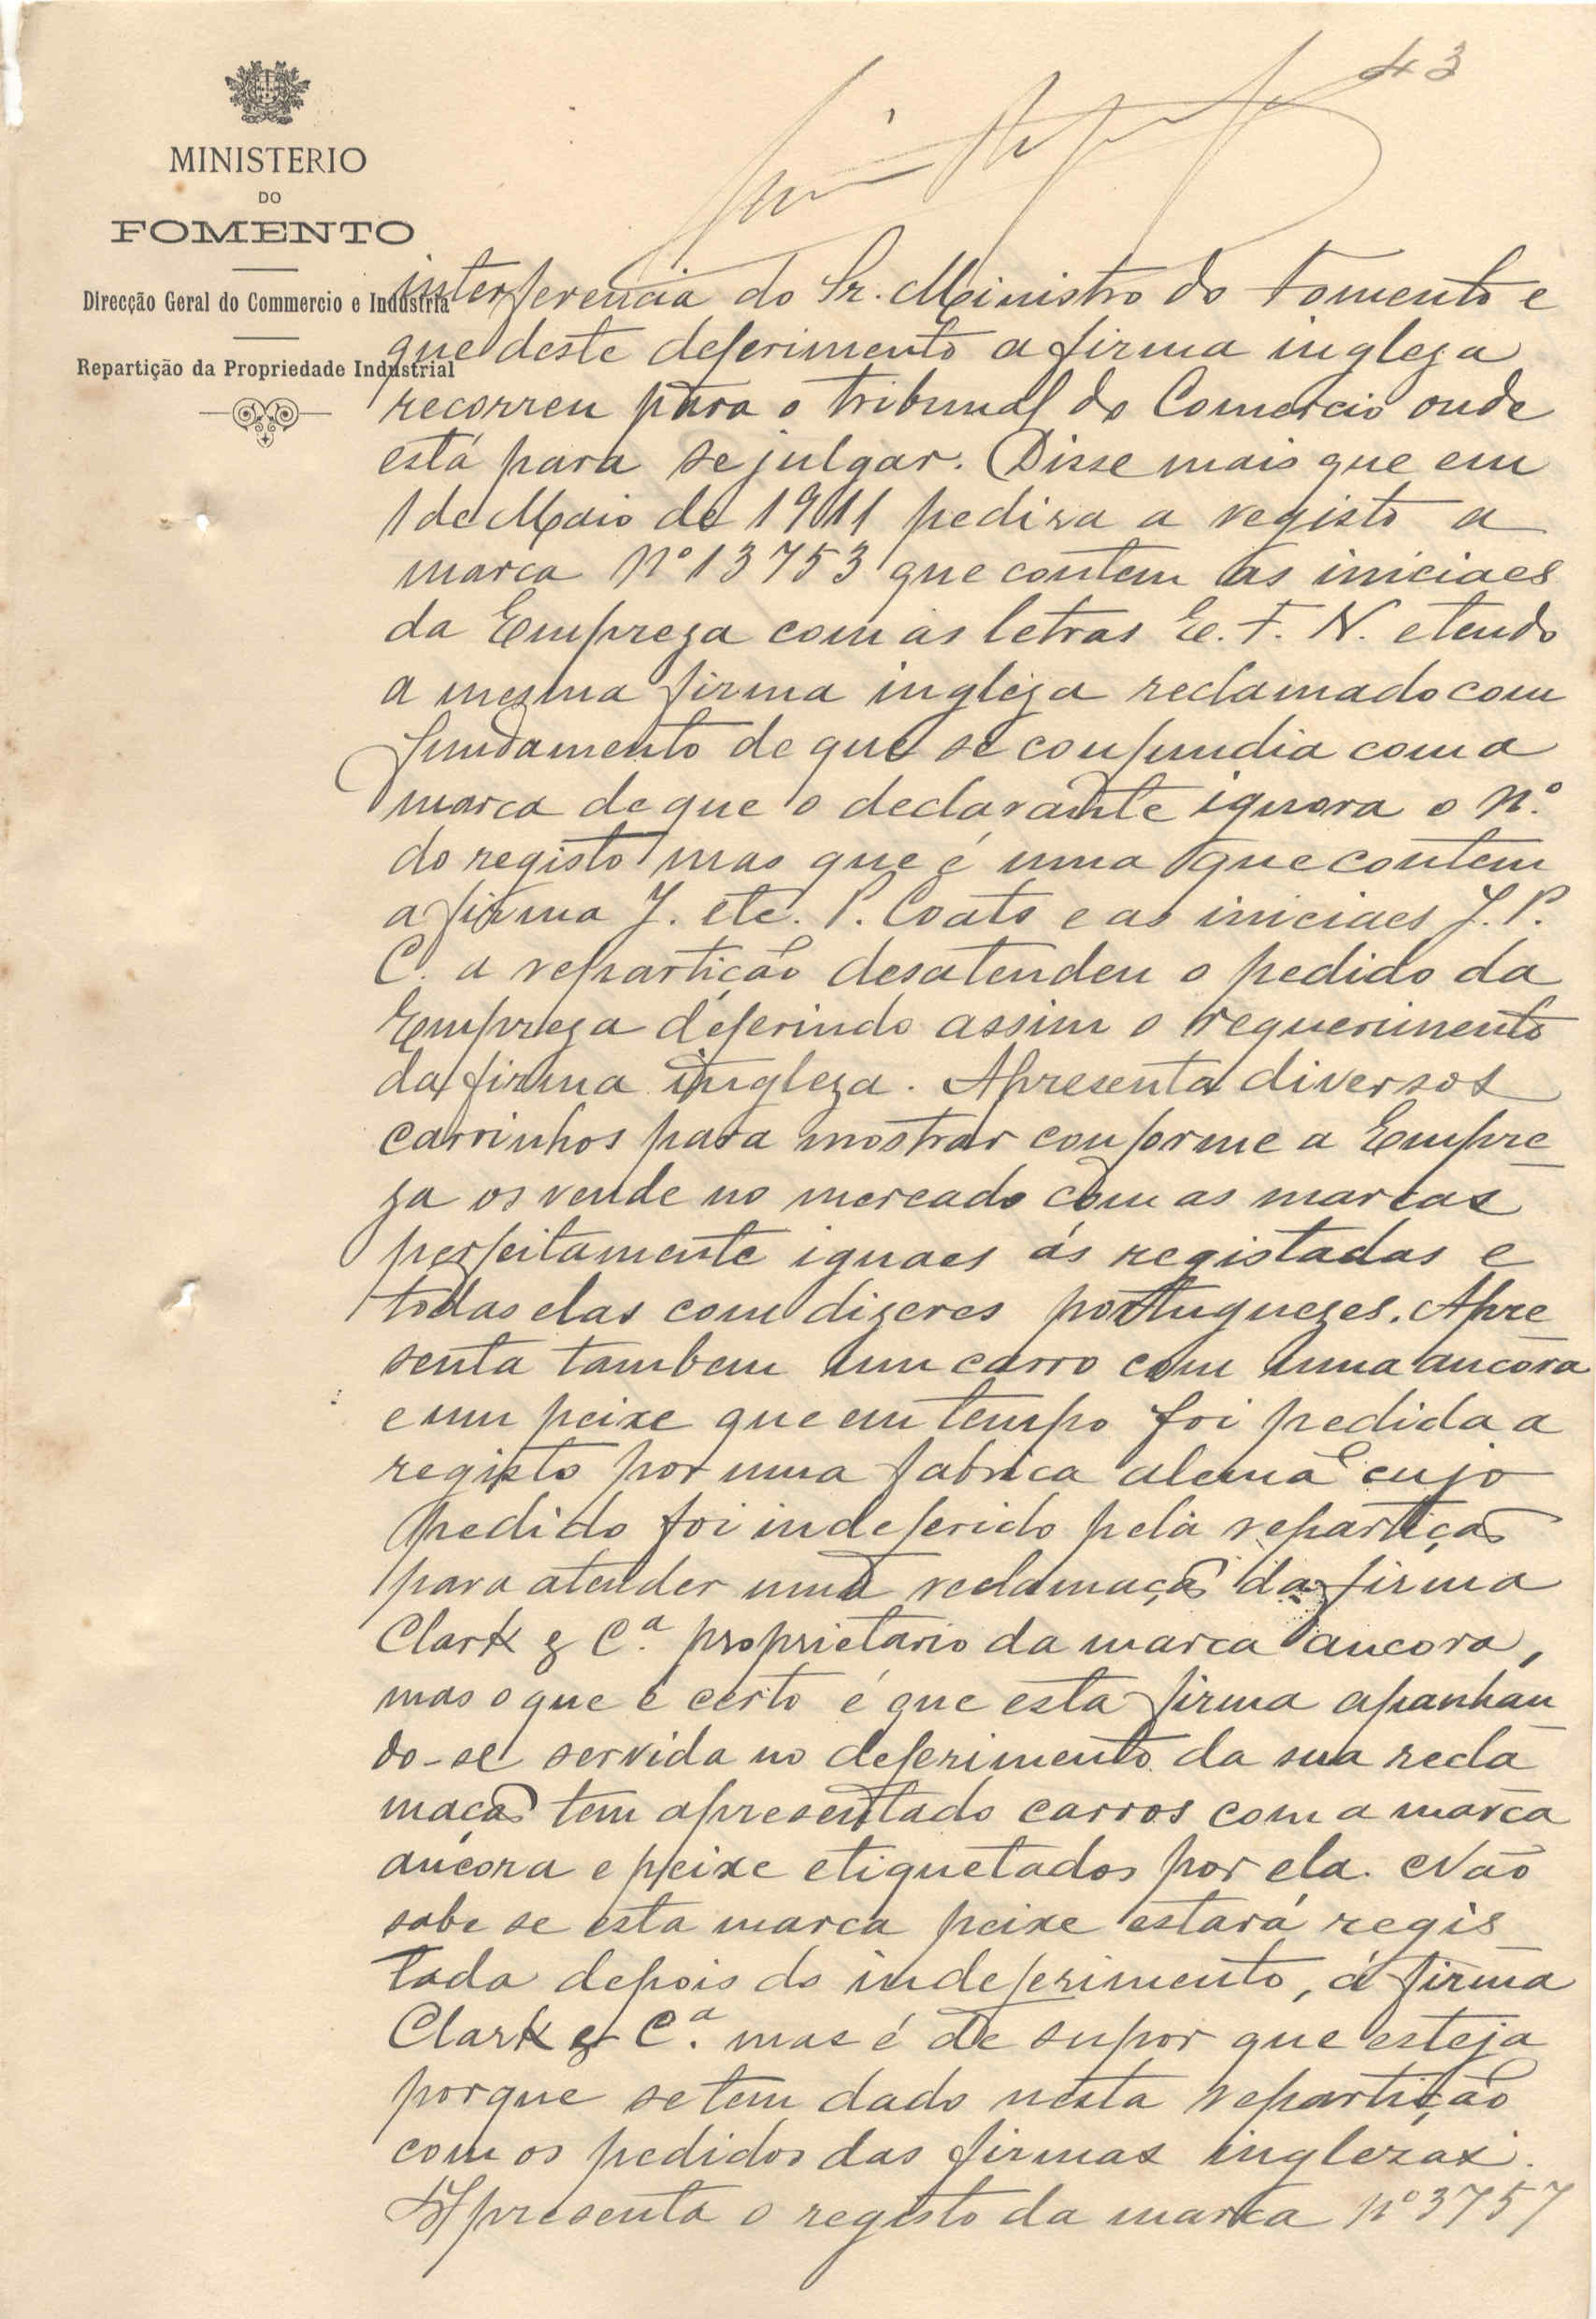 43
MINISTERIO
DO
FOMENTO
Direcção Geral do Commercio e Industria
Repartição da Propriedade Industrial
interferencia do Sr. Ministro do Fomento e
que deste deferimento a firma ingleza
recorreu para o tribunal do Comercio onde
está para se julgar. Disse mais que em
1 de Maio de 1911 pedira a registo a
marca Nº 13753 que contem as iniciaes
da Empreza com as letras E. F. N. e tendo
a mesma firma ingleza reclamado com
fundamento de que se confundia com a
marca de que o declarante ignora o nº
do registo mas que é uma que contem
a firma J. etc. P. Coats e as iniciaes J. P.
C. a repartição desatendeu o pedido da
Empreza deferindo assim o requerimento
da firma ingleza. Apresenta diversos
carrinhos para mostrar conforme a Empre
za os vende no mercado com as marcas
perfeitamente iguaes ás registadas e
todas elas com dizeres portuguezes. Apre
senta tambem um carro com uma ancora
e um peixe que em tempo foi pedida a
registo por uma fabrica alemã cujo
pedido foi indeferido pela repartição
para atender uma reclamação da firma
Clark & C.ª proprietario da marca ancora,
mas o que é certo é que esta firma apanhan
do-se servida no deferimento da sua recla
mação tem apresentado carros com a marca
ancora e peixe etiquetados por ela. Não
sabe se esta marca peixe estará regis
tada depois do indeferimento, á firma
Clark & C.ª mas é de supor que esteja
porque se tem dado nesta repartição
com os pedidos das firmas inglezas.
Apresenta o registo da marca nº 3757